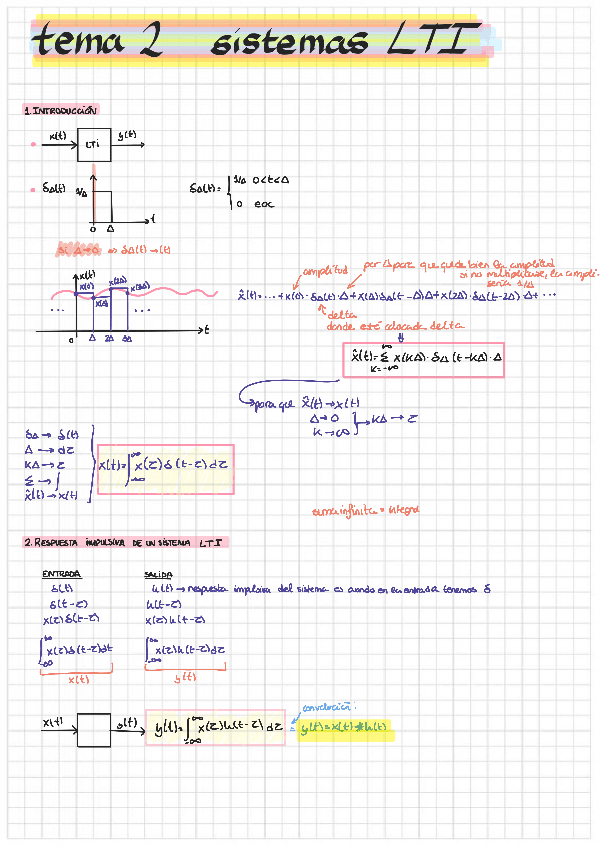 tema 2 sistemas LTI
1. INTRODUCCIÓN
x(t) LTI y(t)
δΔ(t) 1/Δ 0 Δ t
δΔ(t) = { 1/Δ 0<t<Δ
0 eoc
Si Δ→0 ⇒ δΔ(t) → (t)
x(t)
x(0) x(Δ) x(2Δ) x(3Δ)
... ...
0 Δ 2Δ 3Δ t
amplitud
por Δ para que quede bien la amplitud
si no multiplicase, la ampli.
sería 1/Δ
x̂(t) = ... + x(0) · δΔ(t) Δ + x(Δ) δΔ(t-Δ) Δ + x(2Δ) · δΔ(t-2Δ) Δ + ...
delta
donde esté colocada delta
x̂(t) = ∞ Σ K=-∞ x(KΔ) · δΔ (t-KΔ) · Δ
para que x̂(t) → x(t)
Δ→0
K→∞ } KΔ → τ
δΔ → δ(t)
Δ → dτ
KΔ → τ
Σ → ∫
x̂(t) → x(t)
x(t) = ∫ ∞ -∞ x(τ) δ (t-τ) dτ
suma infinita = integral
2. RESPUESTA IMPULSIVA DE UN SISTEMA LTI
ENTRADA SALIDA
δ(t) h(t) → respuesta impulsiva del sistema es cuando en la entrada tenemos δ
δ(t-τ) h(t-τ)
x(τ) δ(t-τ) x(τ) h(t-τ)
∫ ∞ -∞ x(τ) δ(t-τ) dτ ∫ ∞ -∞ x(τ) h(t-τ) dτ
x(t) y(t)
convolución:
x(t) y(t) y(t) = ∫ ∞ -∞ x(τ) h(t-τ) dτ = y(t) = x(t) * h(t)